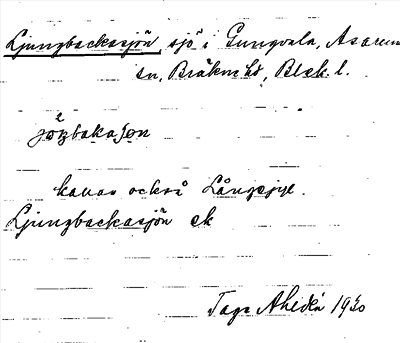 Ljungbackasjön sjö i Gungvala, Asarum
sn, Bräkne hd, Blek. l.
kallas också Långasjö.
Ljungbackasjön ek
Tage Ahldén 1930